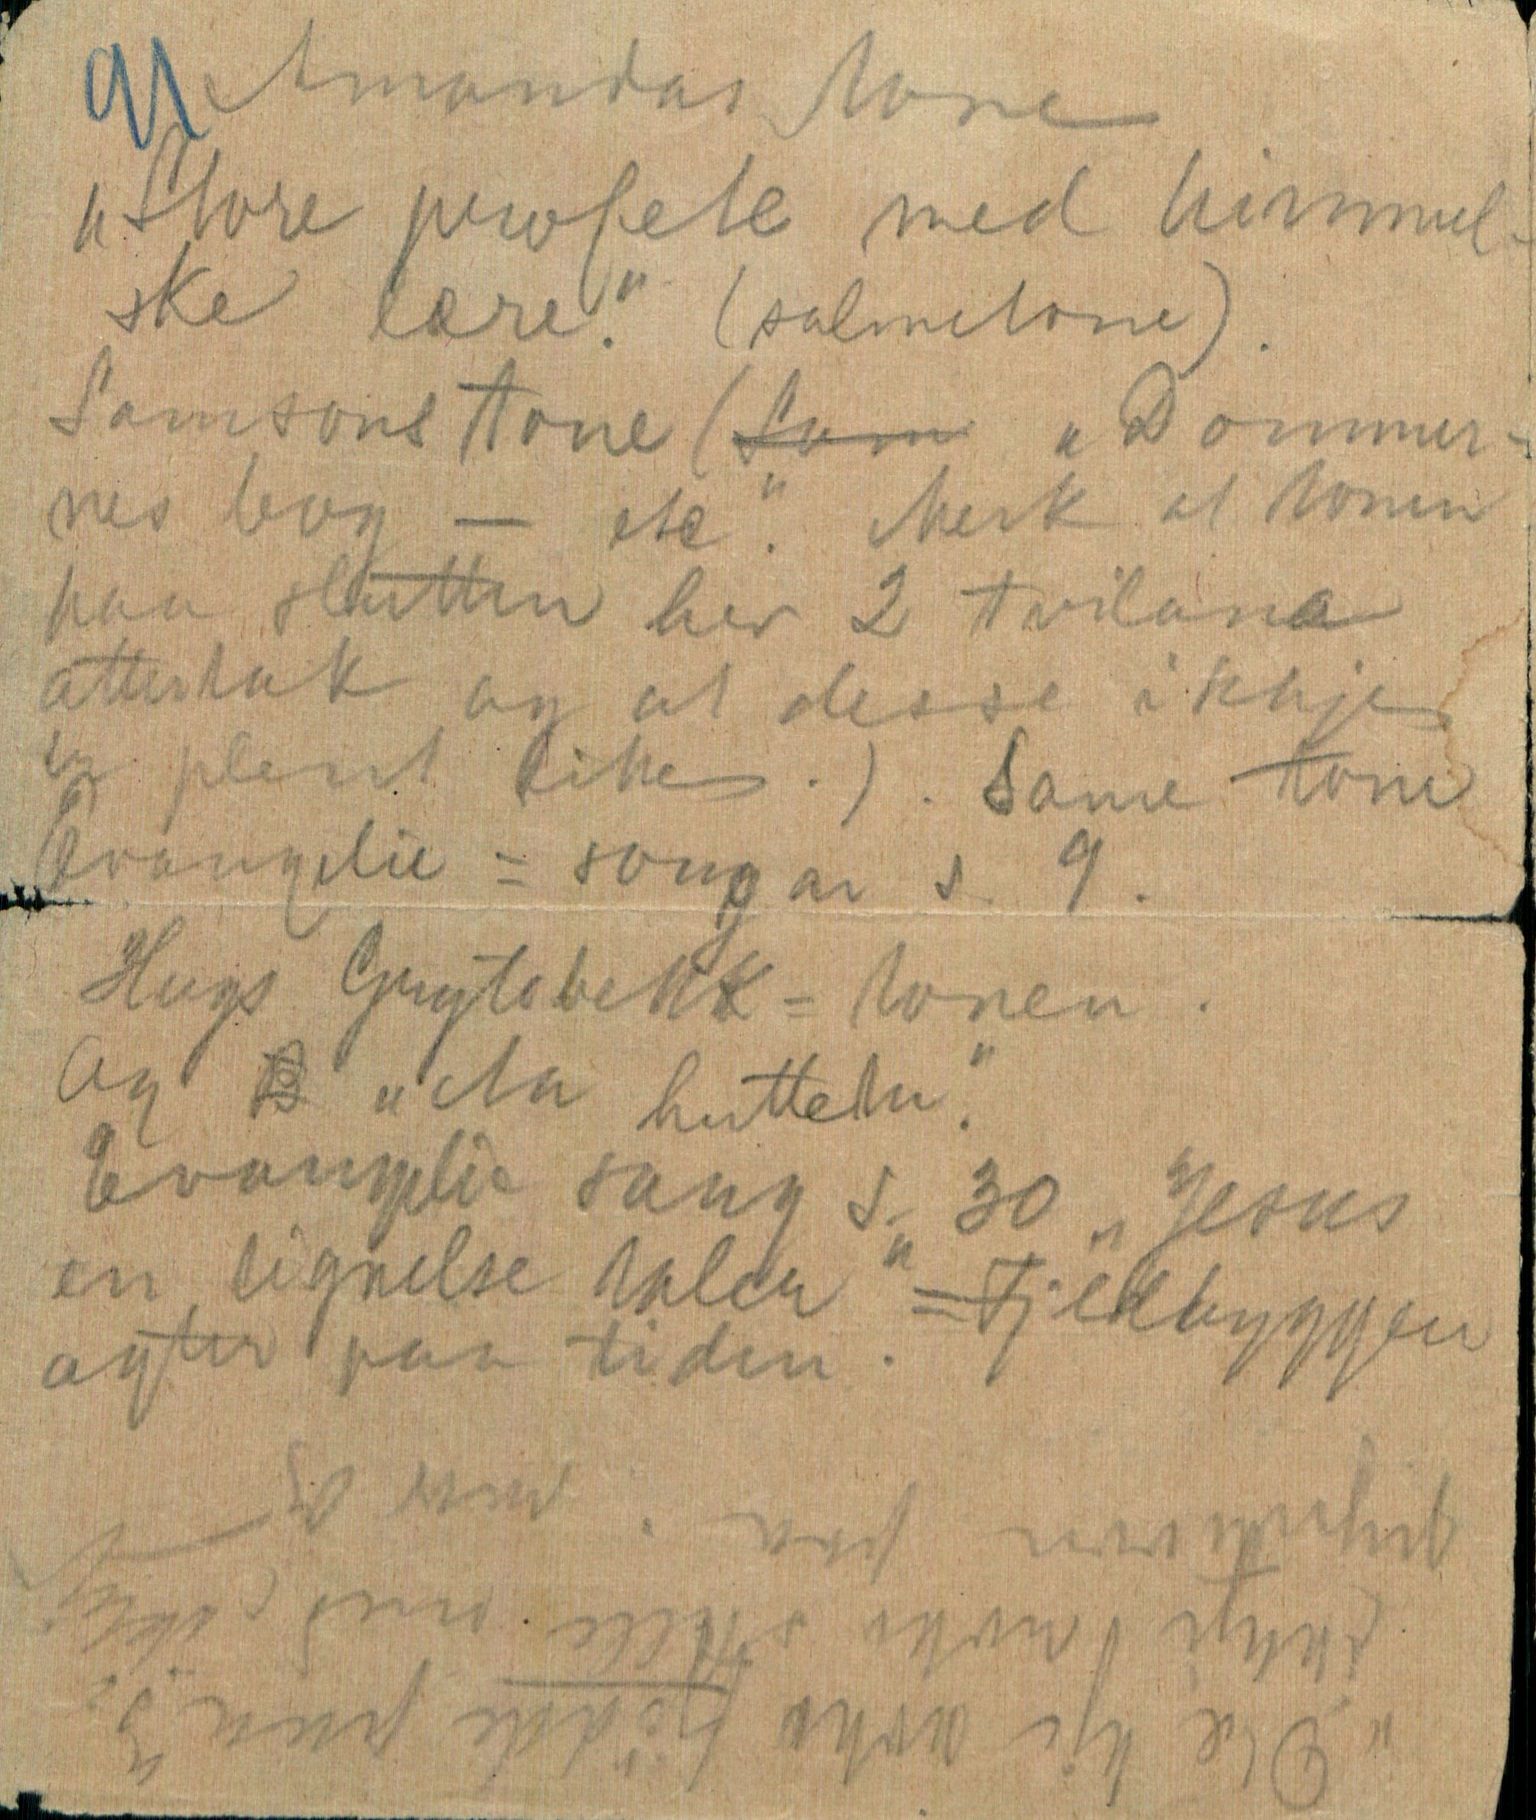 91 Amandas tone
„Store profete med himmel-
ske lære." (salmetone).
Samsons tone (Sam „Dommer-
nes bog — etc". Merk at tonen
paa slutten her 2 tvilana
attertak og at desse ikkje
er plent like.). Same tone
Evangelie = songar s. 9.
Hugs Grytebekk = tonen.
Og „Ma
Evangelie sang s. 30 „Jesus
en lignelse taler" = Fjeldbyggen
agter paa tiden.
„Dæ kje
ikkje
paa.